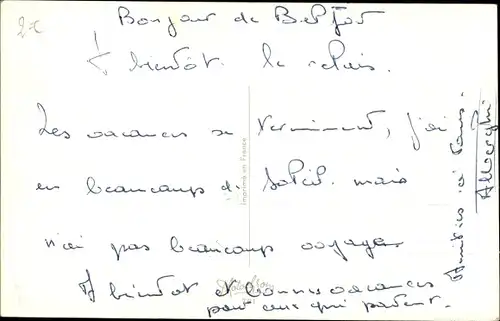 2€
Bonjour de Belfort
A bientôt le relais.
Les vacances se terminent, j'ai
eu beaucoups de soleil. mais
n'ai pas beaucoup voyager
A bientot et bonnes vacances
pour ceux qui partent.
Amitiés à tous.
Imprimé en France